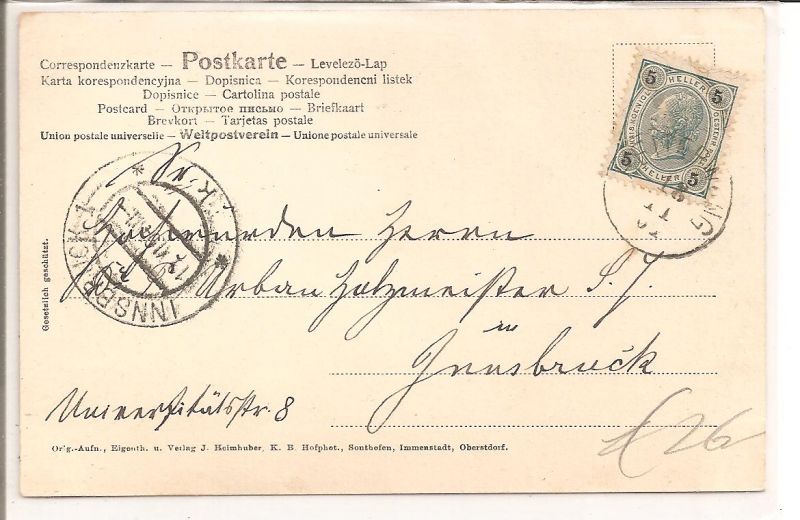 Correspondenzkarte — Postkarte — Levelezö-Lap
Karta korespondencyjna — Dopisnica — Korespondencni listek
Dopisnice — Cartolina postale
Postcard — Открытое письмо — Briefkaart
Brevkort — Tarjetas postale
Union postale universelle — Weltpostverein — Unione postale universale
5 HELLER 5
5 HELLER 5
Sr.
Hochwürden Herrn
Urban Holzmeister S. J.
in
Innsbruck
Universitätsstr. 8
INNSBRUCK 1
Gesetzlich geschützt.
Orig.-Aufn., Eigenth. u. Verlag J. Heimhuber, K. B. Hofphot., Sonthofen, Immenstadt, Oberstdorf.